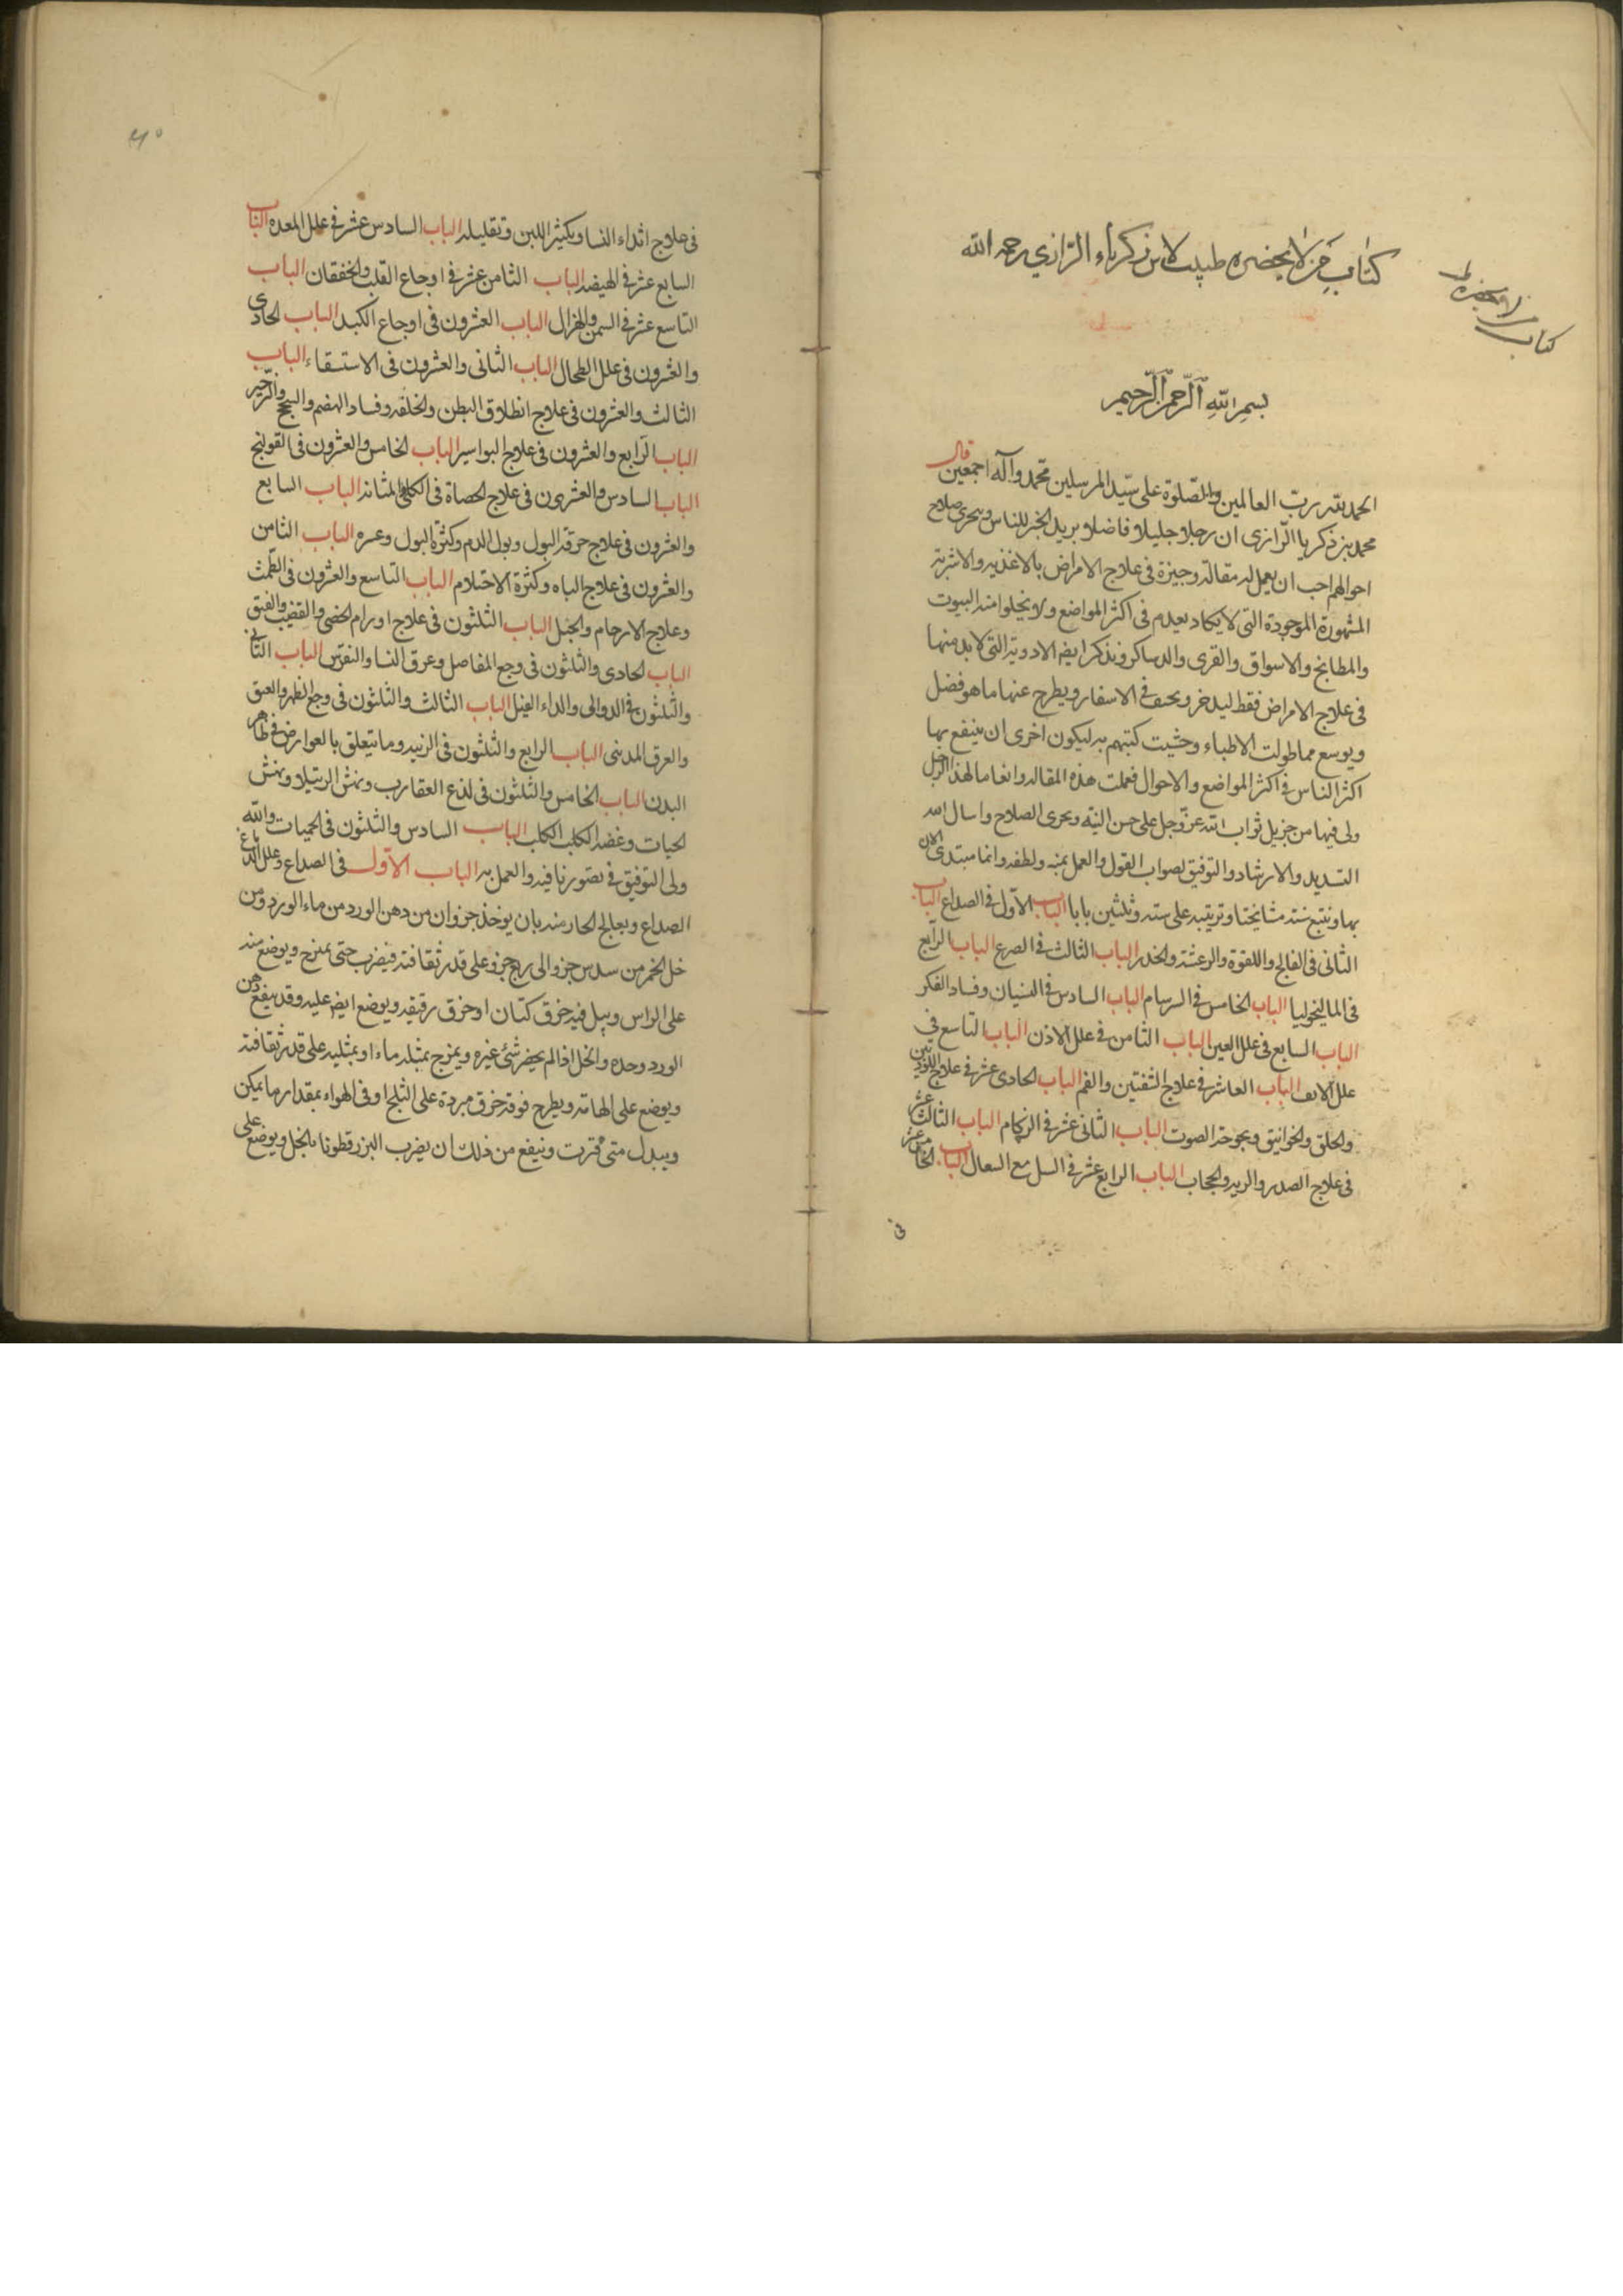 كتاب من لا يحضره طبيب لابن زكرياء الرازي رحمه الله
كتاب
من لا يحضره ط
بسم الله الرحمن الرحيم
الحمد لله رب العالمين والصلوة على سيد المرسلين محمد وآله اجمعين قال
محمد بن زكريا الرازى ان رجلا جليلا فاضلا يريد الخير للناس ويتحرى صلاح
احوالهم احب ان يعمل له مقالة وجيزة فى علاج الامراض بالاغذيه والاشربة
المشهورة الموجودة التى لا يكاد يعدم فى اكثر المواضع ولا يخلوا منه البيوت
والمطابخ والاسواق والقرى والدساكر ونذكر ايضا الادوية التى لا بد منها
فى علاج الامراض فقط ليدخر ويخف فى الاسفار ويطرح عنها ما هو فضل
ويوسع مما طولت الاطباء وحشيت كتبهم به ليكون احرى ان ينتفع بها
اكثر الناس فى اكثر المواضع والاحوال فعملت هذه المقاله وانما ما لهذا الرجل
ولى فيها من جزيل ثواب الله عز وجل على حسن النية وتحرى الصلاح واسال الله
التسديد والارشاد والتوفيق لصواب القول والعمل بمنه ولطفه وانما مبتدى الان
بها ونتبع سنة مشايخنا وترتيبه على سته وثلثين بابا الباب الاول فى الصداع الباب
الثانى فى الفالج واللقوة والرعشة والخدر الباب الثالث فى الصرع الباب الرابع
فى الماليخوليا الباب الخامس فى السرسام الباب السادس فى النسيان وفساد الفكر
الباب السابع فى علل العين الباب الثامن فى علل الاذن الباب التاسع فى
علل الانف الباب العاشر فى علاج الشفتين والفم الباب الحادى عشر فى علاج اللوزتين
والحلق والخوانيق وبحوحة الصوت الباب الثانى عشر فى الزكام الباب الثالث عشر
فى علاج الصدر والريه والحجاب الباب الرابع عشر فى السل مع السعال الباب الخامس عشر
فى
فى علاج اثداء النسا وتكثير اللبن وتقليله الباب السادس عشر فى علل المعده الباب
السابع عشر فى الهيضه الباب الثامن عشر فى اوجاع القلب والخفقان الباب
التاسع عشر فى السمن والهزال الباب العشرون فى اوجاع الكبد الباب الحادى
والعشرون فى علل الطحال الباب الثانى والعشرون فى الاستسقاء الباب
الثالث والعشرون فى علاج انطلاق البطن والخلفه وفساد الهضم والسحج والزحير
الباب الرابع والعشرون فى علاج البواسير الباب الخامس والعشرون فى القولنج
الباب السادس والعشرون فى علاج الحصاة فى الكلى والمثانة الباب السابع
والعشرون فى علاج حرقة البول وبول الدم وكثرة البول وعسره الباب الثامن
والعشرون فى علاج الباه وكثرة الاحتلام الباب التاسع والعشرون فى الطمث
وعلاج الارحام والحبل الباب الثلثون فى علاج اورام الخصى والقضيب والفتق
الباب الحادى والثلثون فى وجع المفاصل وعرق النسا والنقرس الباب الثانى
والثلثون فى الدوالى والداء الفيل الباب الثالث والثلثون فى وجع الظهر والعنق
والعرق المدنى الباب الرابع والثلثون فى الزينه وما يتعلق بالعوارض فى ظاهر
البدن الباب الخامس والثلثون فى لذع العقارب ونهش الرتيلا ونهش
الحيات وعضه الكلب الكلب الباب السادس والثلثون فى الحميات والله
ولى التوفيق فى تصورنا فيه والعمل به الباب الاول فى الصداع وعلل الدماغ
الصداع ويعالج الحار منه بان يوخذ جزوان من دهن الورد من ماء الورد ومن
خل الخمر من سدس جزو الى ربع جزو على قدر ثقافته فيضرب حتى يمتزج ويوضع منه
على الراس ويبل فيه خرق كتان او خرق رقيقه ويوضع ايضا عليه وقد ينفع دهن
الورد وحده والخل اذا لم يحضر شئ غيره ويمزج بمثله ماء او بمثليه على قدر ثقافته
ويوضع على الهامة ويطرح فوقه خرق مبردة على الثلج او فى الهواء بمقدار ما يمكن
ويبدل متى فترت وينفع من ذلك ان يضرب البزرقطونا بالخل ويوضع على